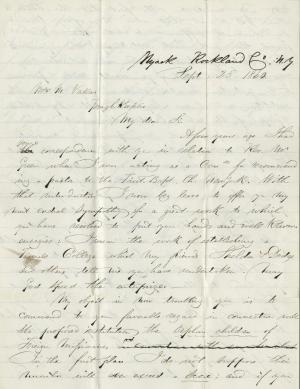 Nyack Rockland Co. N.Y
Sept 25 1862
Mr. M. Vassar
Poughkeepsie
My dear Sir
A few years ago I had
correspondence with you in relation to Rev. Mr
when I was acting as a Com for recommend
ing a pastor to the First Bapt. Ch. With
that introduction I now beg leave to offer you my
most cordial sympathy in a good work to which
you have resolved to put your hands and well known
energies. I mean the work of establishing a
Female College which my friends Sheldon &
and others tell me you have undertaken. May
God speed the enterprise.
My object in now troubling you is to
commend to your favorable regard in connection with
the proposed institution, the orphan children of
Foreign Missionaries,
In the first place I do not suppose their
number will ever exceed a and if you